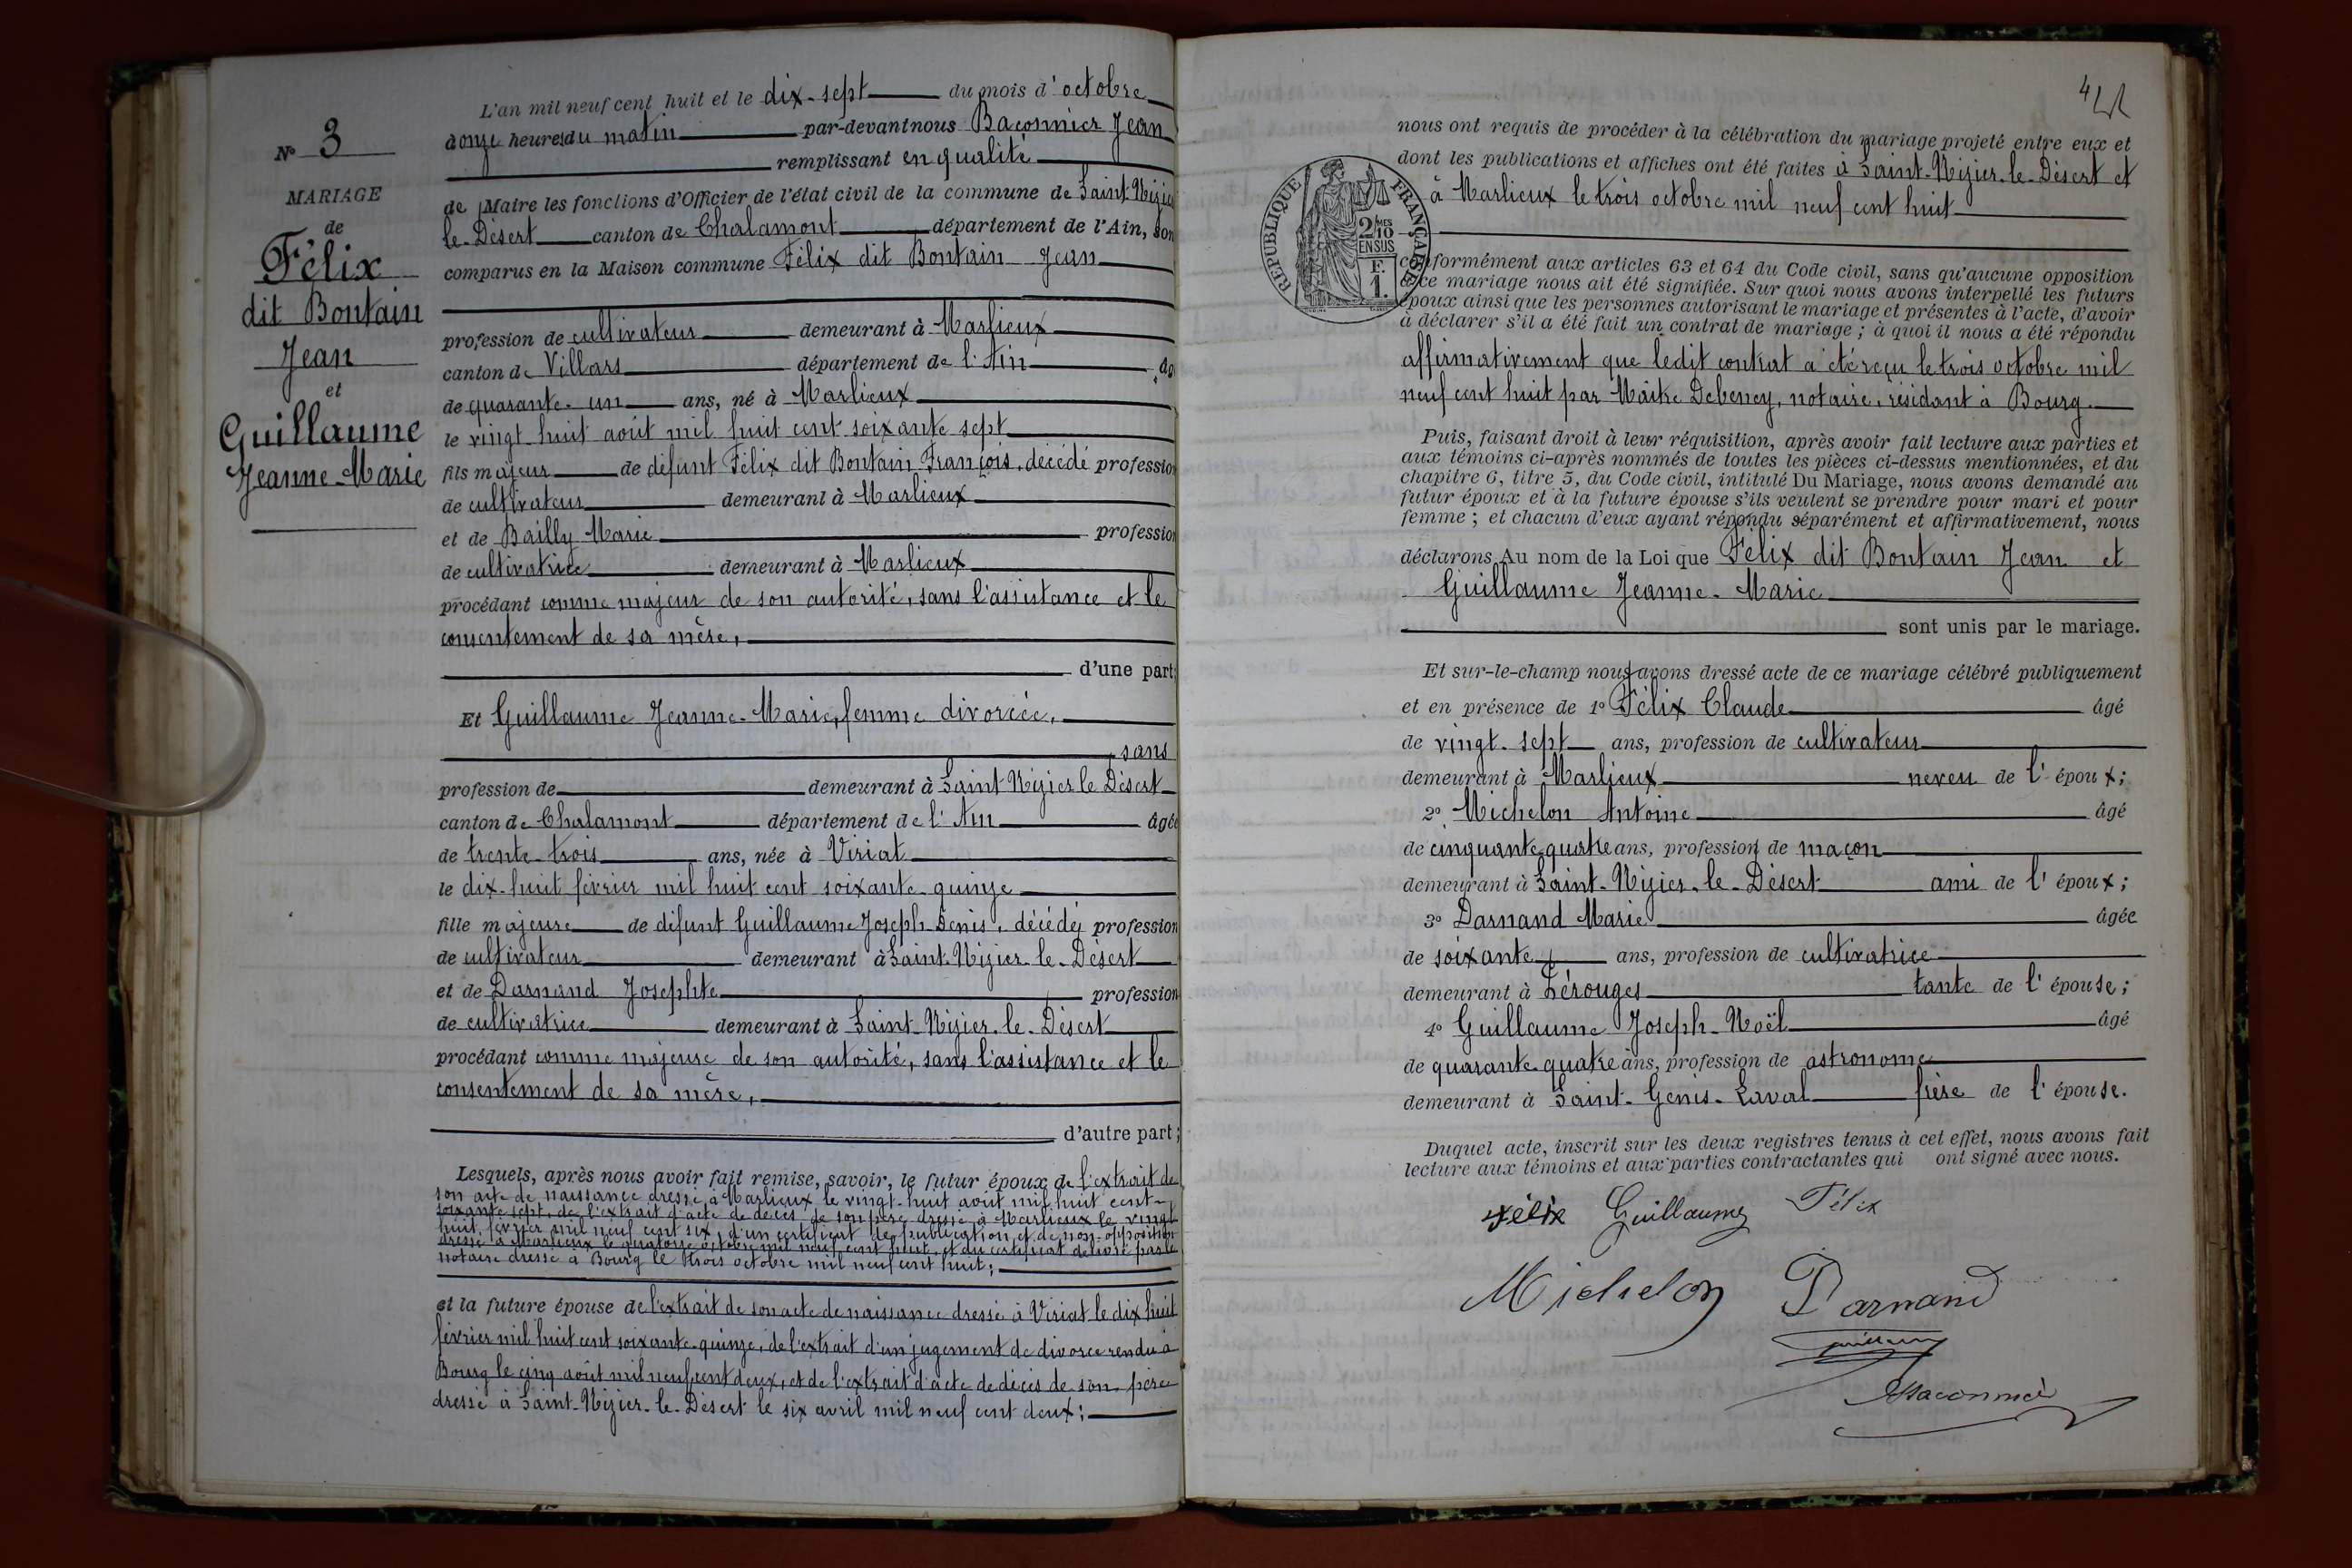 N° 3
MARIAGE
de
Félix
dit Bontain
Jean
et
Guillaume
Jeanne-Marie
L'an mil neuf cent huit et le dix-sept du mois d'octobre
à onze heures du matin par-devant nous Baconnier Jean
remplissant en qualité
de Maire les fonctions d'Officier de l'état civil de la commune de Saint-Nizier
le-Désert canton de Chalamont département de l'Ain, son
comparus en la Maison commune Félix dit Bontain Jean
profession de cultivateur demeurant à Marlieux
canton de Villars département de l'Ain
de quarante-un ans, né à Marlieux
le vingt-huit août mil huit cent soixante sept
fils majeur de défunt Félix dit Bontain François, décédé profession
de cultivateur demeurant à Marlieux
et de Bailly Marie profession
de cultivatrice demeurant à Marlieux
procédant comme majeur de son autorité, sans l'assistance et le
consentement de sa mère,
d'une part;
Et Guillaume Jeanne-Marie, femme divorcée,
sans
profession de demeurant à Saint Nizier le Désert
canton de Chalamont département de l'Ain âgée
de trente-trois ans, née à Viriat
le dix-huit février mil huit cent soixante-quinze
fille majeure de défunt Guillaume Joseph Denis, décédé profession
de cultivateur demeurant à Saint-Nizier-le-Désert
et de Darnand Josephte profession
de cultivatrice demeurant à Saint-Nizier-le-Désert
procédant comme majeure de son autorité, sans l'assistance et le
consentement de sa mère,
d'autre part;
Lesquels, après nous avoir fait remise, savoir, le futur époux de l'extrait de
son acte de naissance dressé à Marlieux le vingt-huit août mil huit cent
soixante sept, de l'extrait d'acte de décès de son père dressé à Marlieux le vingt
huit février mil neuf cent six, d'un certificat de publication et de non-opposition
dressé à Marlieux le quatorze octobre mil neuf cent huit, et du certificat délivré par le
notaire dressé à Bourg le trois octobre mil neuf cent huit;
et la future épouse de l'extrait de son acte de naissance dressé à Viriat le dix huit
février mil huit cent soixante-quinze, de l'extrait d'un jugement de divorce rendu à
Bourg le cinq août mil neuf cent deux, et de l'extrait d'acte de décès de son père
dressé à Saint-Nizier-le-Désert le six avril mil neuf cent deux;
4
nous ont requis de procéder à la célébration du mariage projeté entre eux et
dont les publications et affiches ont été faites à Saint-Nizier-le-Désert et
à Marlieux le trois octobre mil neuf cent huit
RÉPUBLIQUE FRANÇAISE
2/10 MES
EN SUS
F.
1.
conformément aux articles 63 et 64 du Code civil, sans qu'aucune opposition
à ce mariage nous ait été signifiée. Sur quoi nous avons interpellé les futurs
époux ainsi que les personnes autorisant le mariage et présentes à l'acte, d'avoir
à déclarer s'il a été fait un contrat de mariage; à quoi il nous a été répondu
affirmativement que ledit contrat a été reçu le trois octobre mil
neuf cent huit par Maître Debeney, notaire, résidant à Bourg.
Puis, faisant droit à leur réquisition, après avoir fait lecture aux parties et
aux témoins ci-après nommés de toutes les pièces ci-dessus mentionnées, et du
chapitre 6, titre 5, du Code civil, intitulé Du Mariage, nous avons demandé au
futur époux et à la future épouse s'ils veulent se prendre pour mari et pour
femme; et chacun d'eux ayant répondu séparément et affirmativement, nous
déclarons Au nom de la Loi que Félix dit Bontain Jean et
Guillaume Jeanne-Marie
sont unis par le mariage.
Et sur-le-champ nous avons dressé acte de ce mariage célébré publiquement
et en présence de 1° Félix Claude âgé
de vingt-sept ans, profession de cultivateur
demeurant à Marlieux neveu de l'époux;
2° Michelon Antoine âgé
de cinquante-quatre ans, profession de maçon
demeurant à Saint-Nizier-le-Désert ami de l'époux;
3° Darnand Marie âgée
de soixante ans, profession de cultivatrice
demeurant à Pérouges tante de l'épouse;
4° Guillaume Joseph-Noël âgé
de quarante-quatre ans, profession de astronome
demeurant à Saint-Genis-Laval frère de l'épouse.
Duquel acte, inscrit sur les deux registres tenus à cet effet, nous avons fait
lecture aux témoins et aux parties contractantes qui ont signé avec nous.
Félix Guillaume Félix
Michelon Darnand
Guillaume
Baconnier